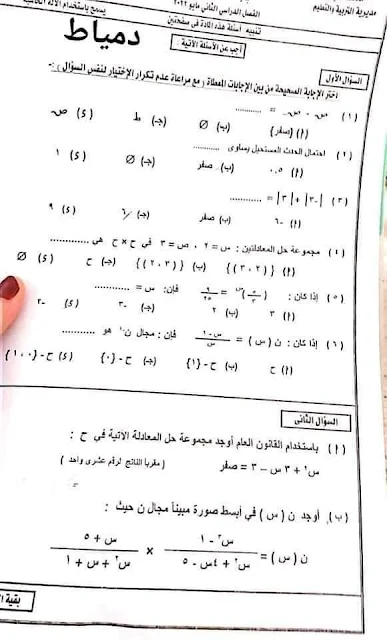 مديرية التربية والتعليم
الفصل الدراسى الثانى مايو ٢٠٢٢
يسمح باستخدام الآلة الحاسبة
تنبيه أسئلة هذه المادة فى صفحتين
دمياط
أجب عن الأسئلة الآتية :
السؤال الأول
أختر الإجابة الصحيحة من بين الإجابات المعطاة ( مع مراعاة عدم تكرار الإختيار لنفس السؤال ) :-
(١) ص₊ ∩ ص₋ = ............
(أ) {صفر} (ب) Ø (جـ) ط (د) ص
(٢) احتمال الحدث المستحيل يساوى ............
(أ) ٠,٥ (ب) صفر (جـ) Ø (د) ١
(٣) |-٣| + |٣| = ............
(أ) -٦ (ب) صفر (جـ) ٦ (د) ٩
(٤) مجموعة حل المعادلتين : س = ٢ ، ص = ٣ فى ح × ح هى ............
(أ) {(٣،٢)} (ب) {(٢،٣)} (جـ) ح (د) Ø
(٥) إذا كان : (٣/٥)^س = ٩/٢٥ فإن: س = ............
(أ) ٣ (ب) ٢ (جـ) -٣ (د) -٢
(٦) إذا كان : ن ( س ) = (س - ١)/س فإن : مجال ن⁻¹ هو ............
(أ) ح (ب) ح - {١} (جـ) ح - {٠} (د) ح - {١،٠}
السؤال الثانى
(أ) باستخدام القانون العام أوجد مجموعة حل المعادلة الآتية فى ح :
س² + ٣ س - ٣ = صفر ( مقربا الناتج لرقم عشرى واحد )
(ب) أوجد ن ( س ) فى أبسط صورة مبيناً مجال ن حيث :
ن ( س ) = (س³ - ١)/(س² + ٤س - ٥) × (س + ٥)/(س² + س + ١)
بقية